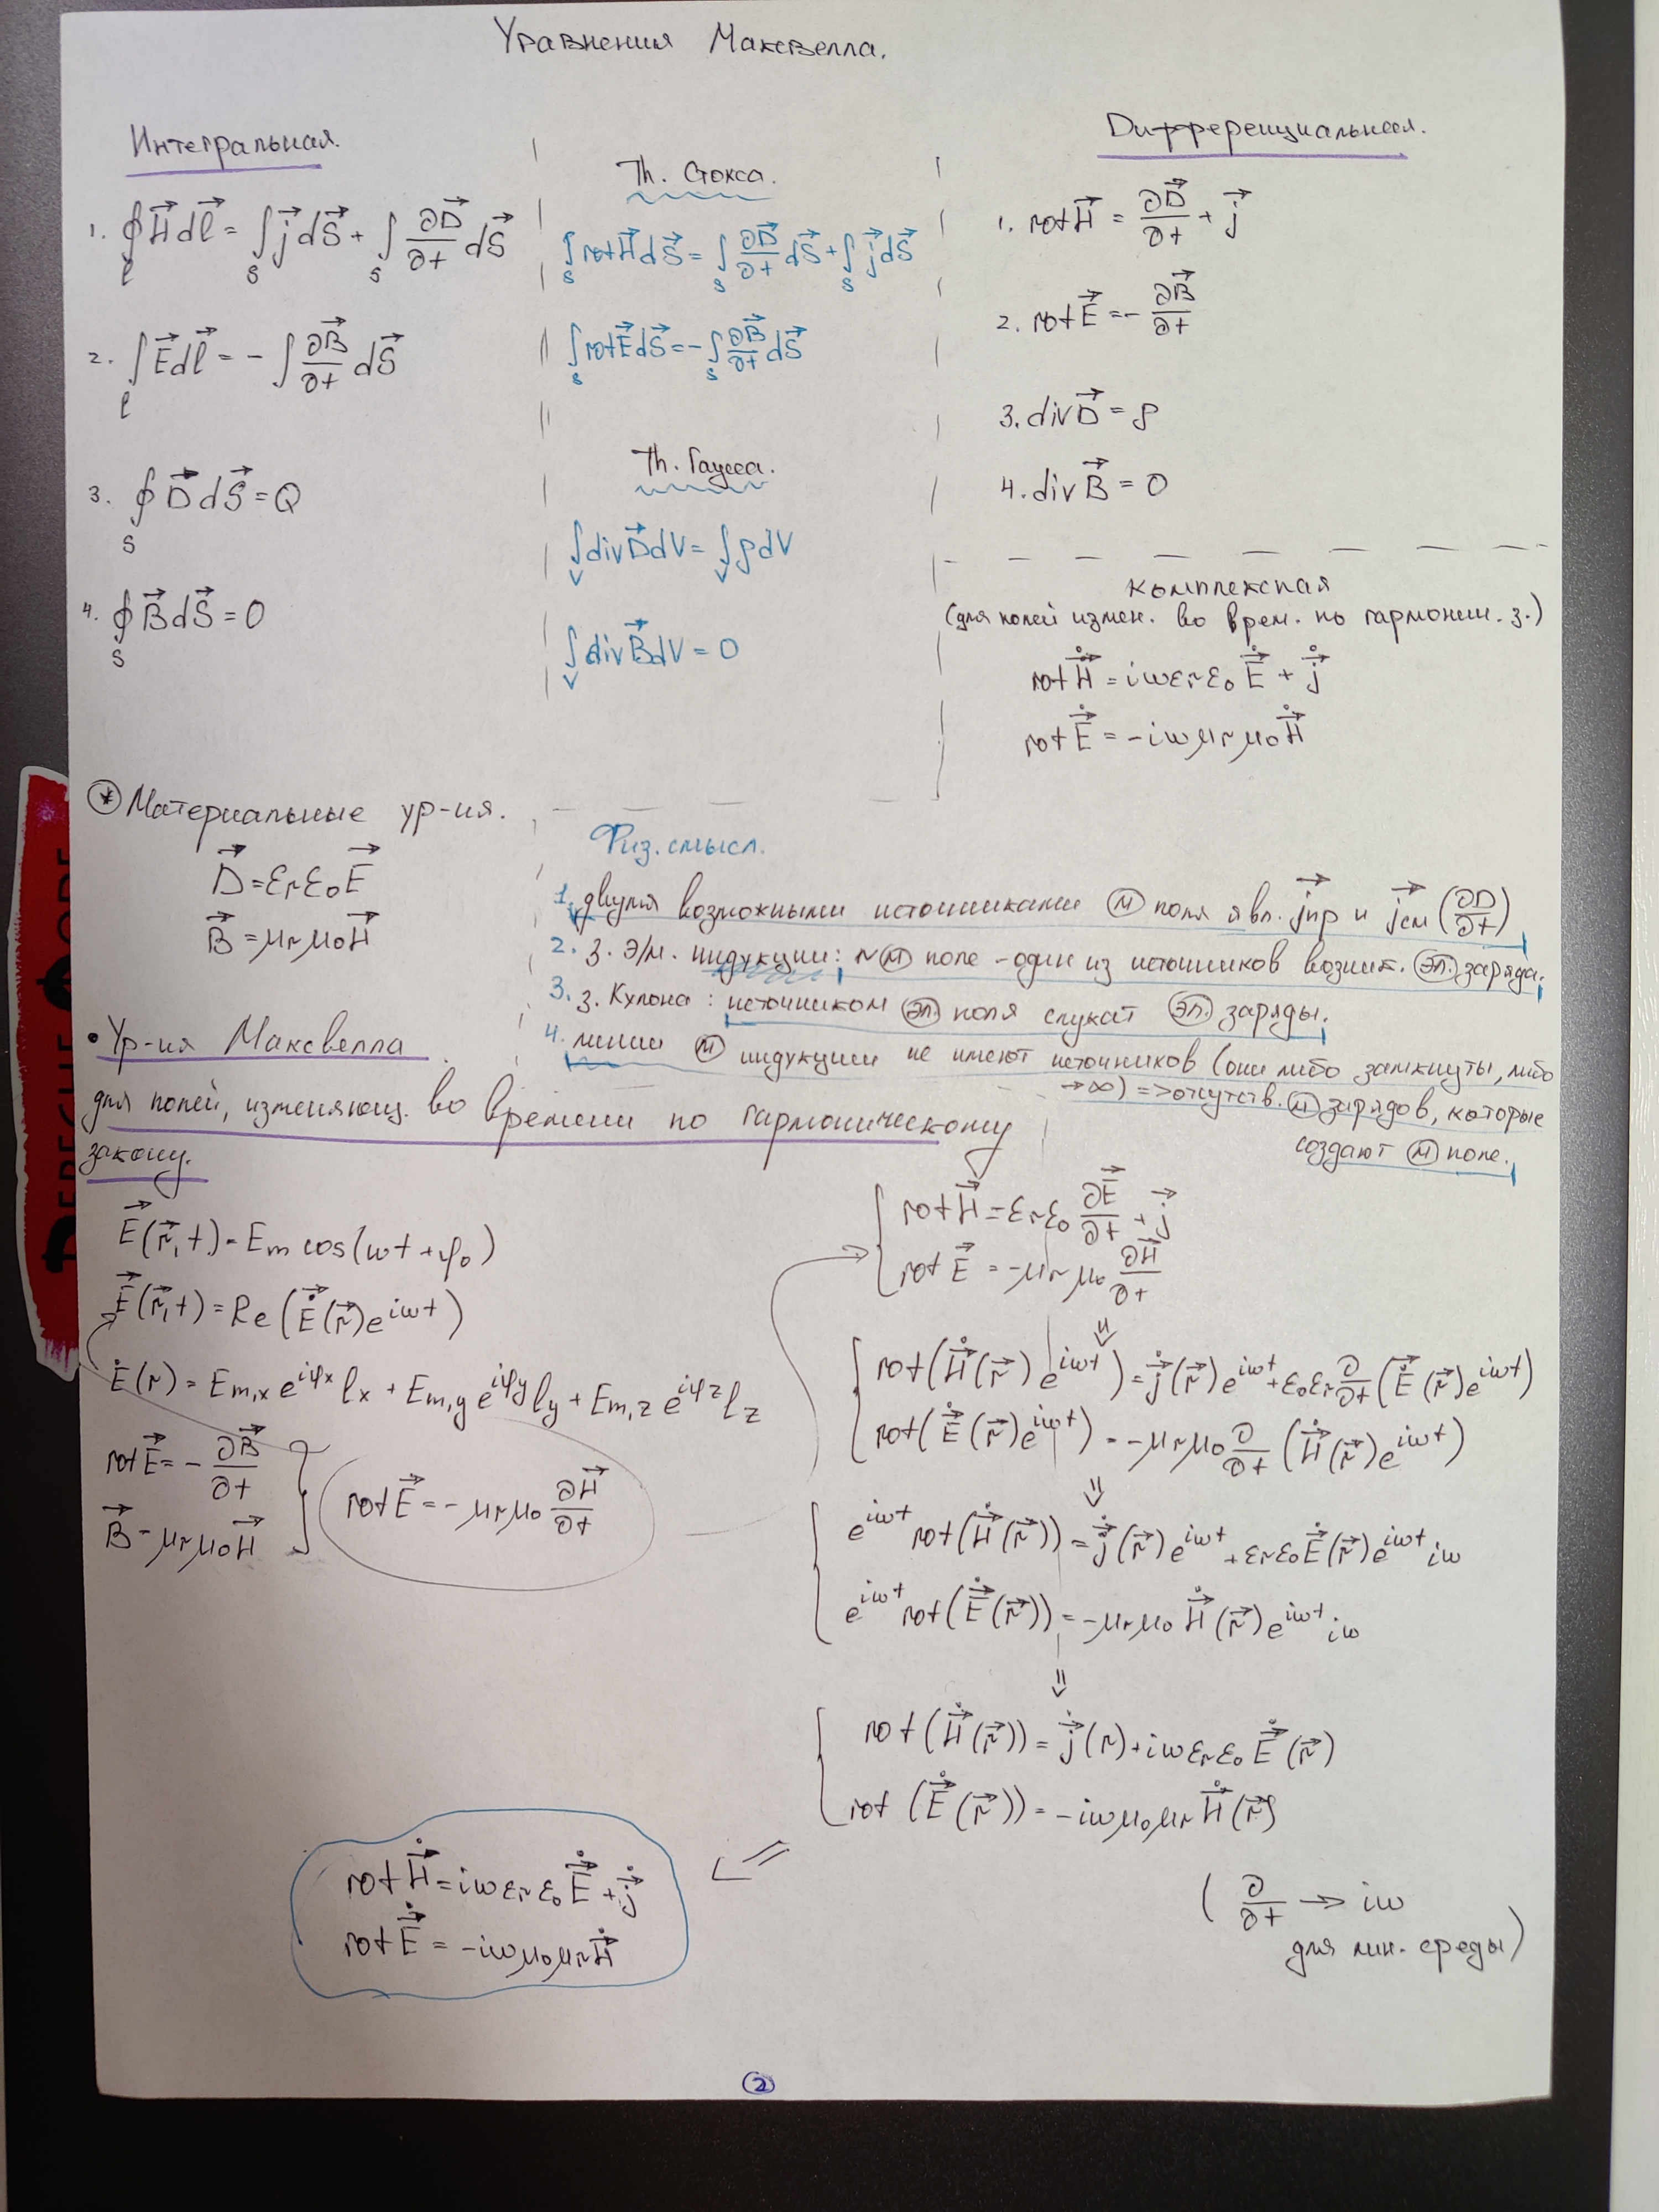 Уравнения Максвелла.
Интегральная.
1. ∮_l H⃗ dl⃗ = ∫_S j⃗ dS⃗ + ∫_S ∂D⃗/∂t dS⃗
2. ∫_l E⃗ dl⃗ = - ∫ ∂B⃗/∂t dS⃗
3. ∮_S D⃗ dS⃗ = Q
4. ∮_S B⃗ dS⃗ = 0
Th. Стокса.
∫_S rot H⃗ dS⃗ = ∫_S ∂D⃗/∂t dS⃗ + ∫_S j⃗ dS⃗
∫_S rot E⃗ dS⃗ = - ∫_S ∂B⃗/∂t dS⃗
Th. Гаусса.
∫_V div D⃗ dV = ∫_V ρ dV
∫_V div B⃗ dV = 0
Дифференциальная.
1. rot H⃗ = ∂D⃗/∂t + j⃗
2. rot E⃗ = - ∂B⃗/∂t
3. div D⃗ = ρ
4. div B⃗ = 0
комплексная
(для полей измен. во врем. по гармонич. з.)
rot Ḣ⃗ = iωεrε0 Ė⃗ + j̇⃗
rot Ė⃗ = -iωμrμ0 Ḣ⃗
* Материальные ур-ия.
D⃗ = εrε0 E⃗
B⃗ = μrμ0 H⃗
Физ. смысл.
1. двумя возможными источниками (м) поля явл. j⃗пр и j⃗см (∂D/∂t)
2. з. э/м. индукции: ~(м) поле - один из источников возник. (эл.) заряда.
3. з. Кулона: источником (эл.) поля служат (эл.) заряды.
4. линии (м) индукции не имеют источников (они либо замкнуты, либо
→∞) => отсутств. (м) зарядов, которые
создают (м) поле.
• Ур-ия Максвелла
для полей, изменяющ. во времени по гармоническому
закону.
E⃗(r⃗,t) = Em cos(ωt + φ0)
E⃗(r⃗,t) = Re(Ė⃗(r⃗)e^{iωt})
Ė(r) = Em,x e^{iφx} lx + Em,y e^{iφy} ly + Em,z e^{iφz} lz
rot E⃗ = - ∂B⃗/∂t
B⃗ = μrμ0 H⃗
rot E⃗ = - μrμ0 ∂H⃗/∂t
rot H⃗ = εrε0 ∂E⃗/∂t + j⃗
rot E⃗ = -μrμ0 ∂H⃗/∂t
⇓
rot(Ḣ⃗(r⃗) e^{iωt}) = j̇⃗(r⃗)e^{iωt} + ε0εr ∂/∂t (Ė⃗(r⃗)e^{iωt})
rot(Ė⃗(r⃗)e^{iωt}) = -μrμ0 ∂/∂t (Ḣ⃗(r⃗)e^{iωt})
⇓
e^{iωt} rot(Ḣ⃗(r⃗)) = j̇⃗(r⃗)e^{iωt} + εrε0 Ė⃗(r⃗)e^{iωt} iω
e^{iωt} rot(Ė⃗(r⃗)) = -μrμ0 Ḣ⃗(r⃗)e^{iωt} iω
⇓
rot(Ḣ⃗(r⃗)) = j̇⃗(r) + iωεrε0 Ė⃗(r⃗)
rot(Ė⃗(r⃗)) = -iωμ0μr Ḣ⃗(r⃗)
⇐
rot Ḣ⃗ = iωεrε0 Ė⃗ + j̇⃗
rot Ė⃗ = -iωμ0μr Ḣ⃗
(∂/∂t → iω
для лин. среды)
2
DEPECHE MODE